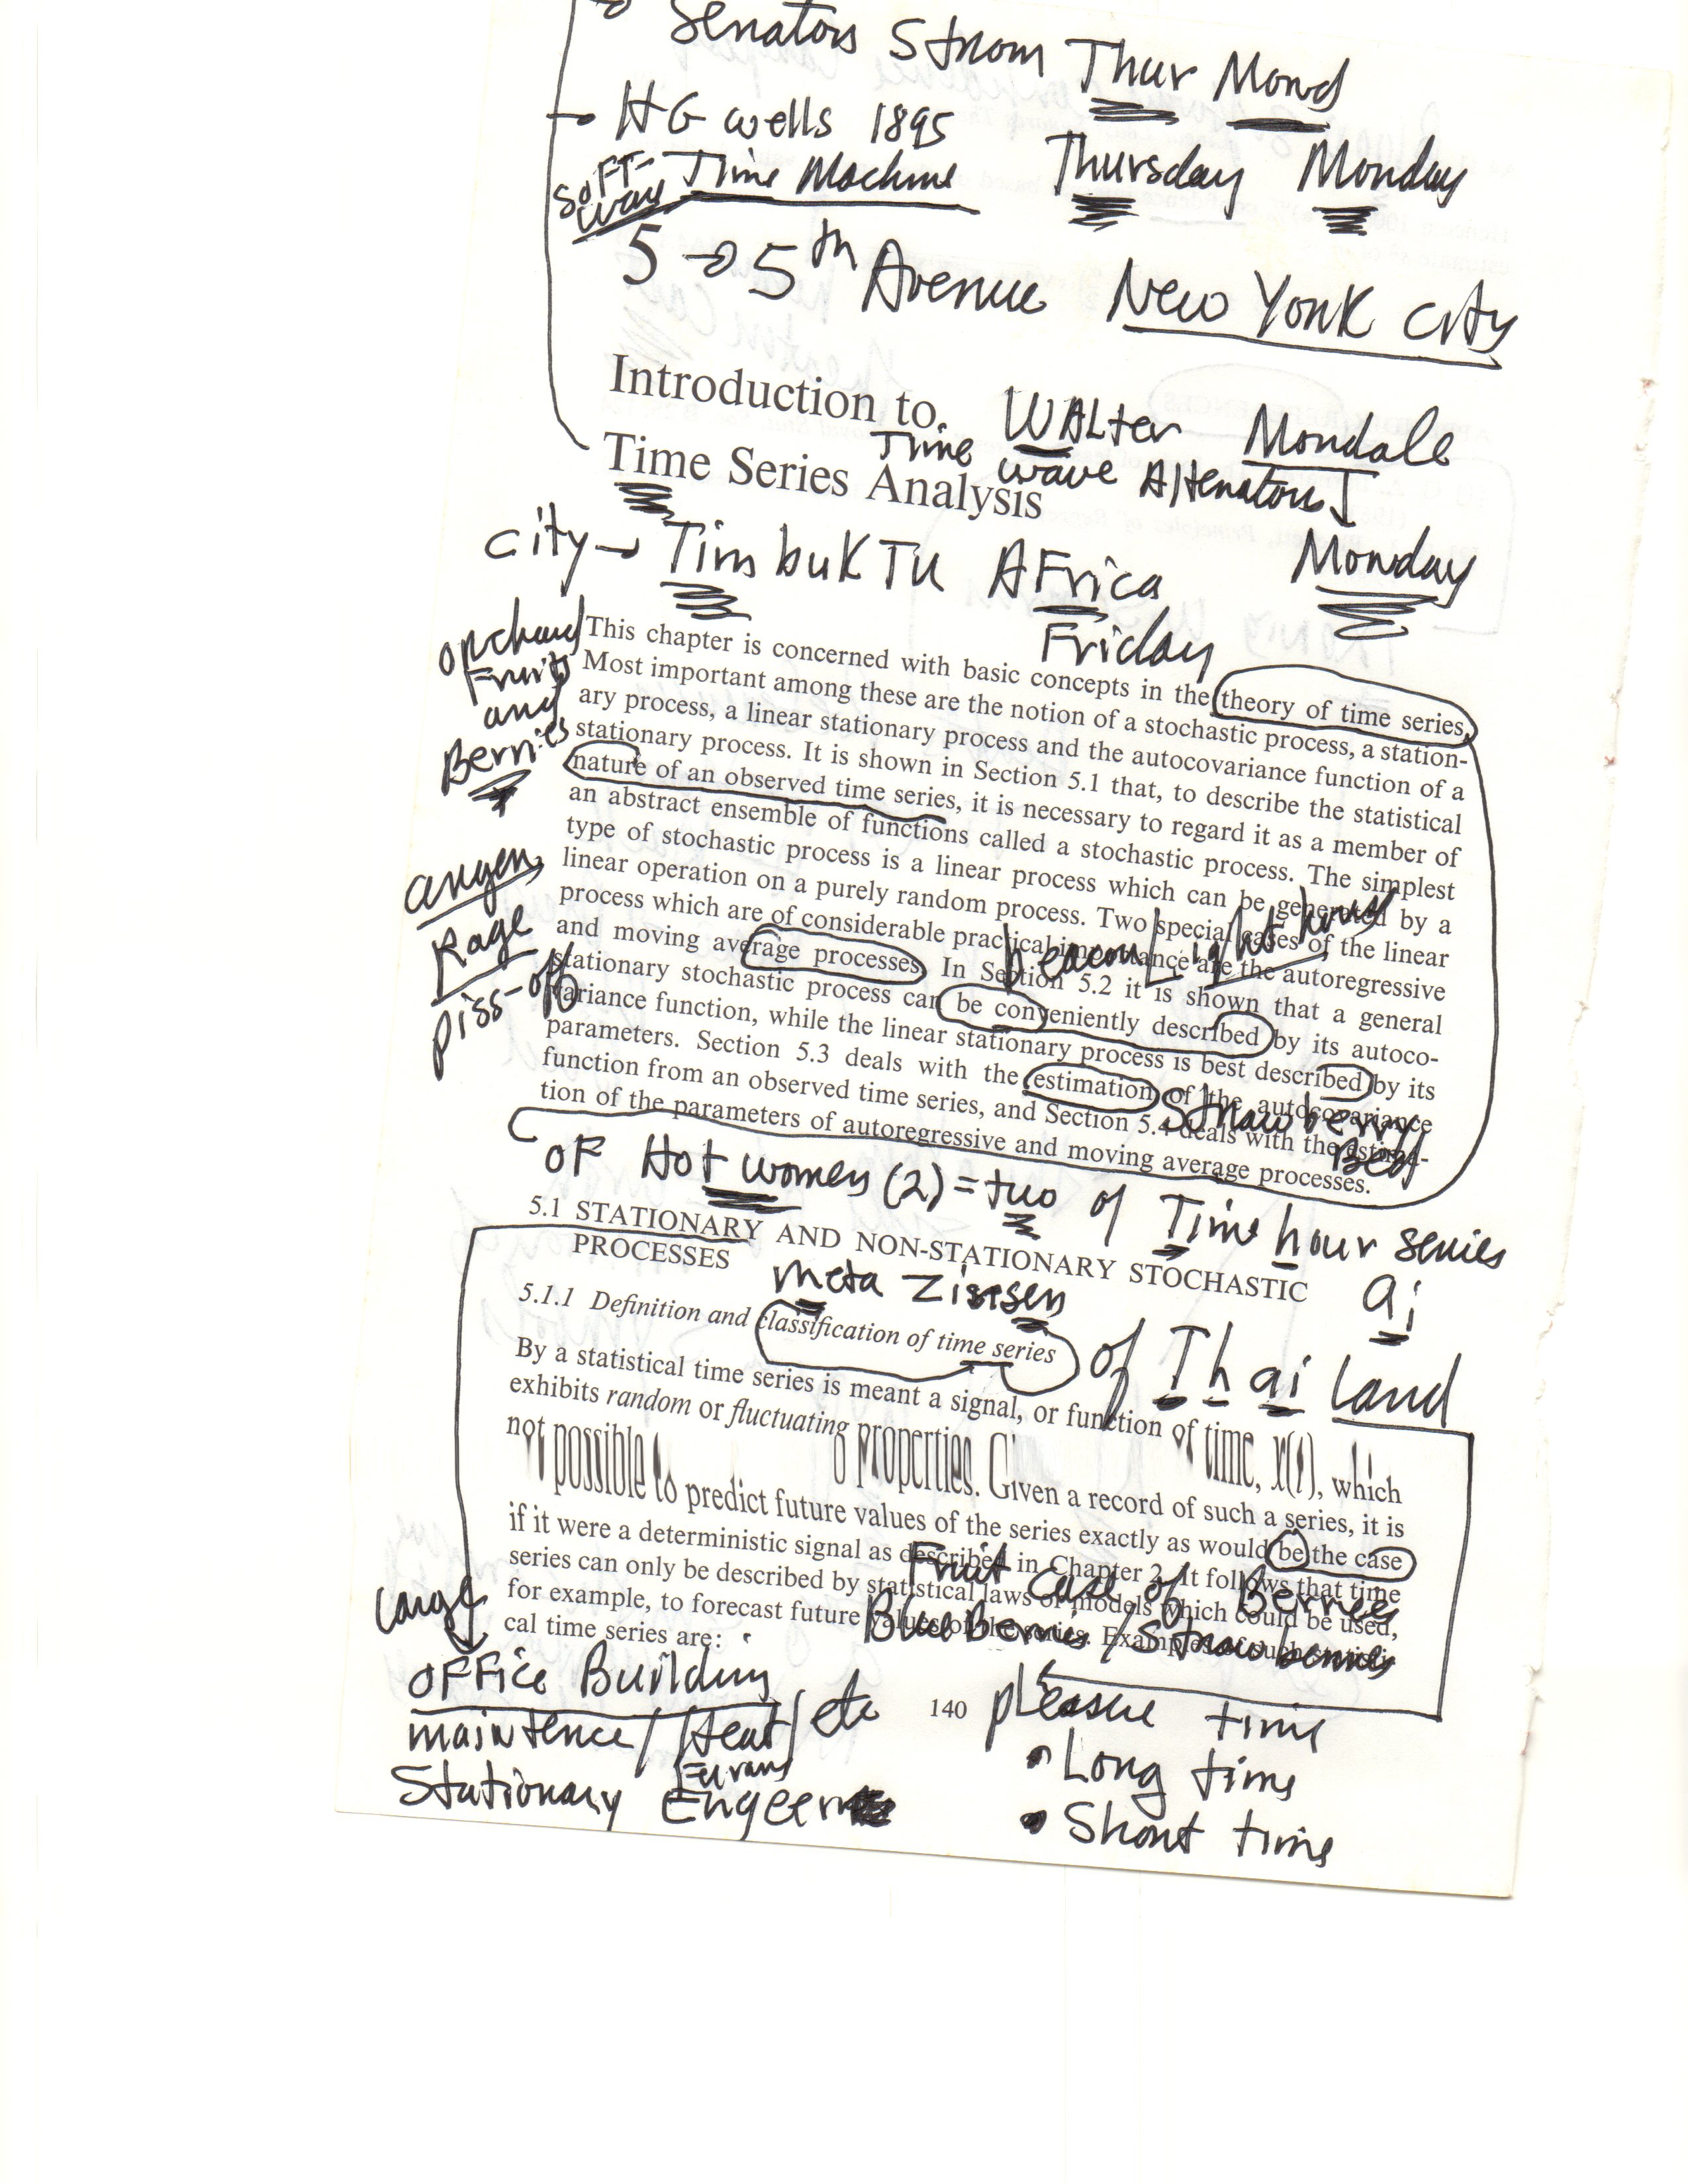 Senators Strom Thur Mond
HG wells 1895
Thursday Monday
SOFT-
WARE
Time Machine
5 → 5th Avenue New York City
Introduction to
Time Series Analysis
WALter Mondale
Time wave Altenators
city → Tim buKTU AFrica Monday
Friday
orchard
Fruits
and
Berries
This chapter is concerned with basic concepts in the theory of time series.
Most important among these are the notion of a stochastic process, a station-
ary process, a linear stationary process and the autocovariance function of a
stationary process. It is shown in Section 5.1 that, to describe the statistical
nature of an observed time series, it is necessary to regard it as a member of
an abstract ensemble of functions called a stochastic process. The simplest
type of stochastic process is a linear process which can be generated by a
linear operation on a purely random process. Two special cases of the linear
process which are of considerable practical importance are the autoregressive
and moving average processes. In Section 5.2 it is shown that a general
stationary stochastic process can be conveniently described by its autoco-
variance function, while the linear stationary process is best described by its
parameters. Section 5.3 deals with the estimation of the autocovariance
function from an observed time series, and Section 5.4 deals with the estima-
tion of the parameters of autoregressive and moving average processes.
anger
Rage
piss-off
beacon Light hous
Strawberry
Bed
OF Hot women (2) = two of Time hour series
5.1 STATIONARY AND NON-STATIONARY STOCHASTIC
PROCESSES
meta
ai
5.1.1 Definition and classification of time series
of Thai Land
By a statistical time series is meant a signal, or function of time, x(t), which
exhibits random or fluctuating properties. Given a record of such a series, it is
not possible to predict future values of the series exactly as would be the case
if it were a deterministic signal as described in Chapter 2. It follows that time
series can only be described by statistical laws or models which could be used,
for example, to forecast future values of the series. Examples of such statisti-
cal time series are:
Fruit case of Berries
BlueBerries / Strawberries
Large
OFFice Building
maintence / Heat / etc
Stationary
140
pleasue time
• Long time
• Short time